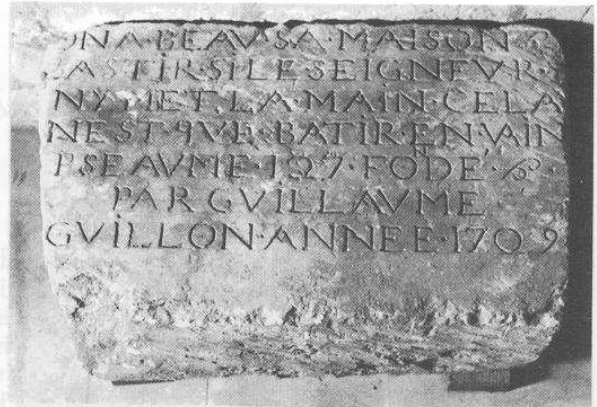 ON·A·BEAV·SA·MAISON
BASTIR·SI·LE·SEIGNEVR·
NY·MET·LA·MAIN·CELA
NEST·QVE·BATIR·EN·VAIN
PSEAVME·127·FODÉ·
PAR GVILLAVME
GVILLON·ANNEE·1709